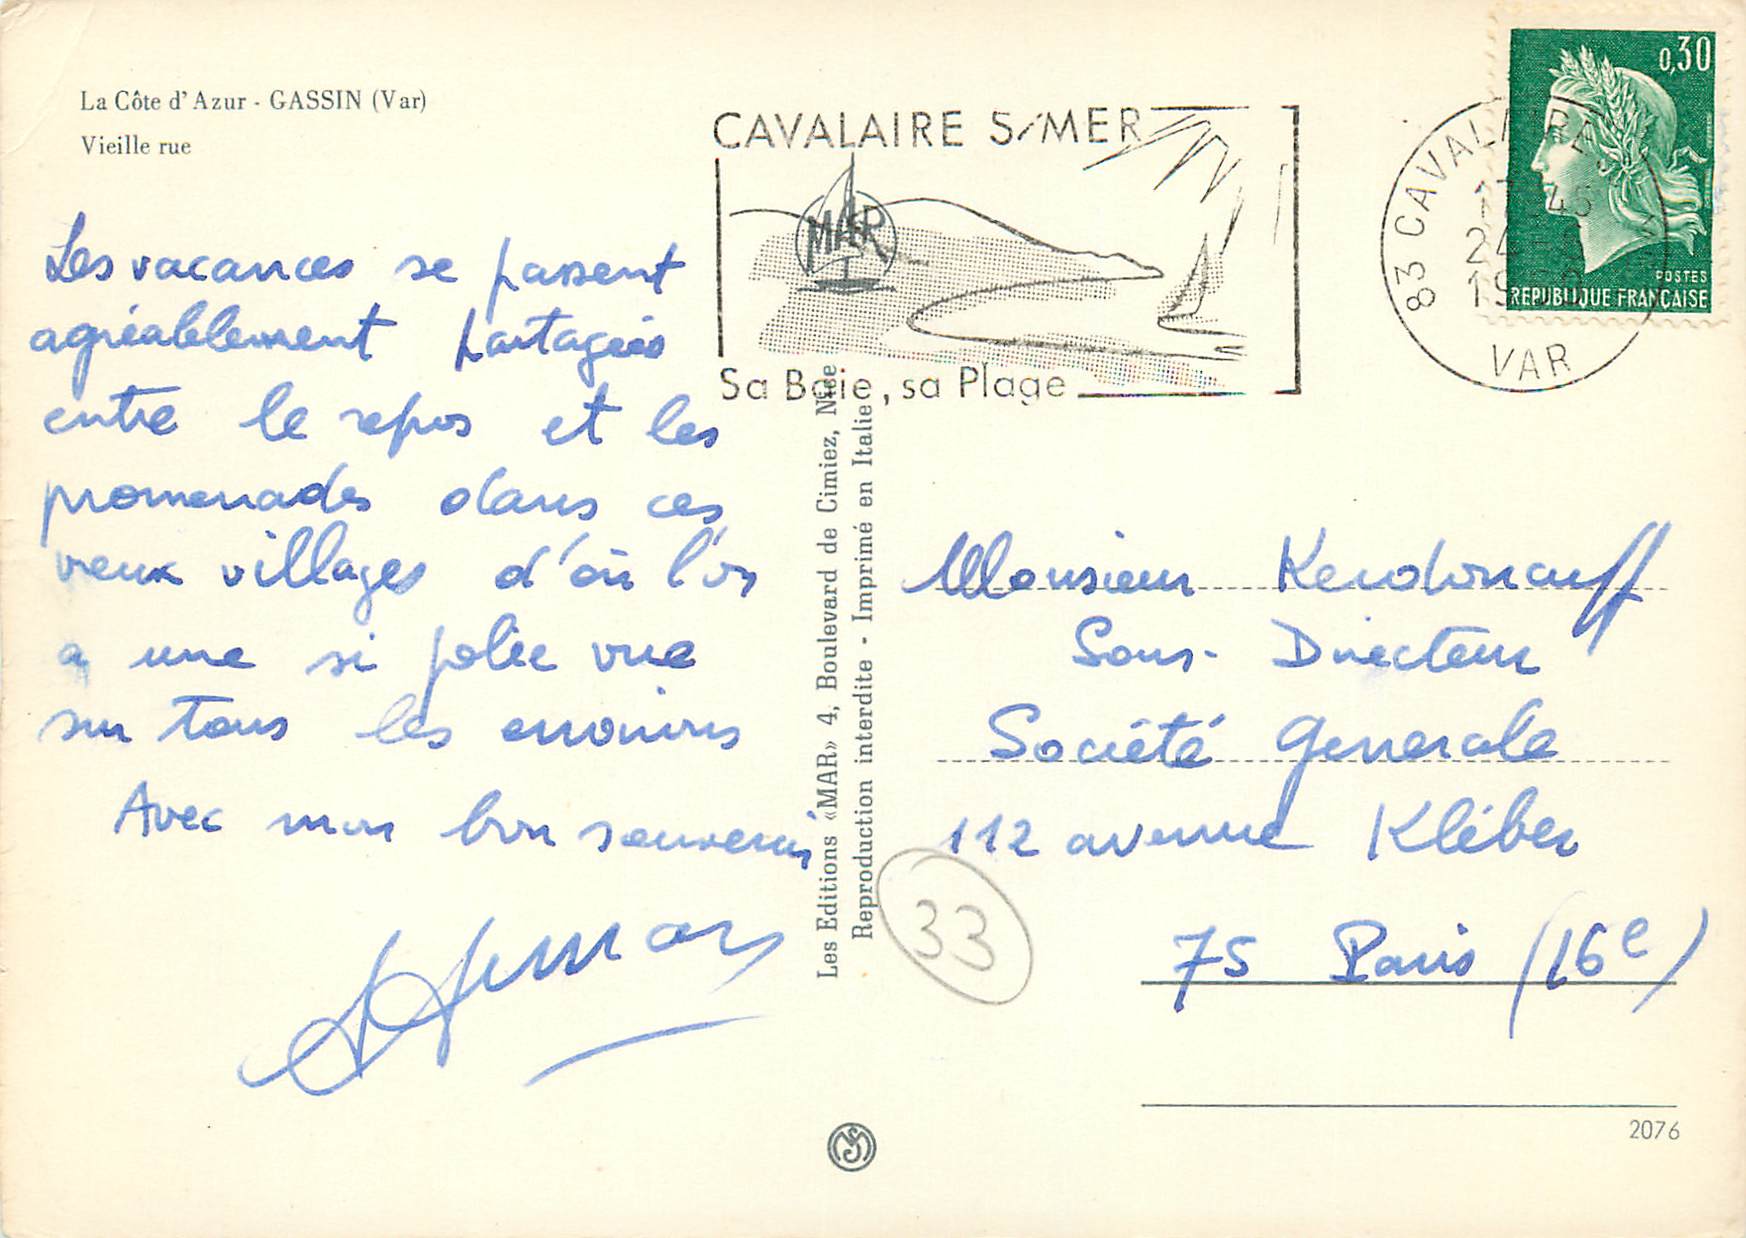 La Côte d'Azur - GASSIN (Var)
Vieille rue
CAVALAIRE S/MER
MAR
Sa Baie, sa Plage
83 CAVALAIRE S
VAR
0,30
POSTES
REPUBLIQUE FRANÇAISE
Les vacances se passent
agréablement partagées
entre le repos et les
promenades dans ces
vieux villages d'où l'on
a une si jolie vue
sur tous les environs
Avec mon bon souvenir
Les Editions «MAR» 4, Boulevard de Cimiez, Nice
Reproduction interdite - Imprimé en Italie
Monsieur
Sous-Directeur
Société Generale
112 avenue Kléber
75 Paris (16e)
33
2076